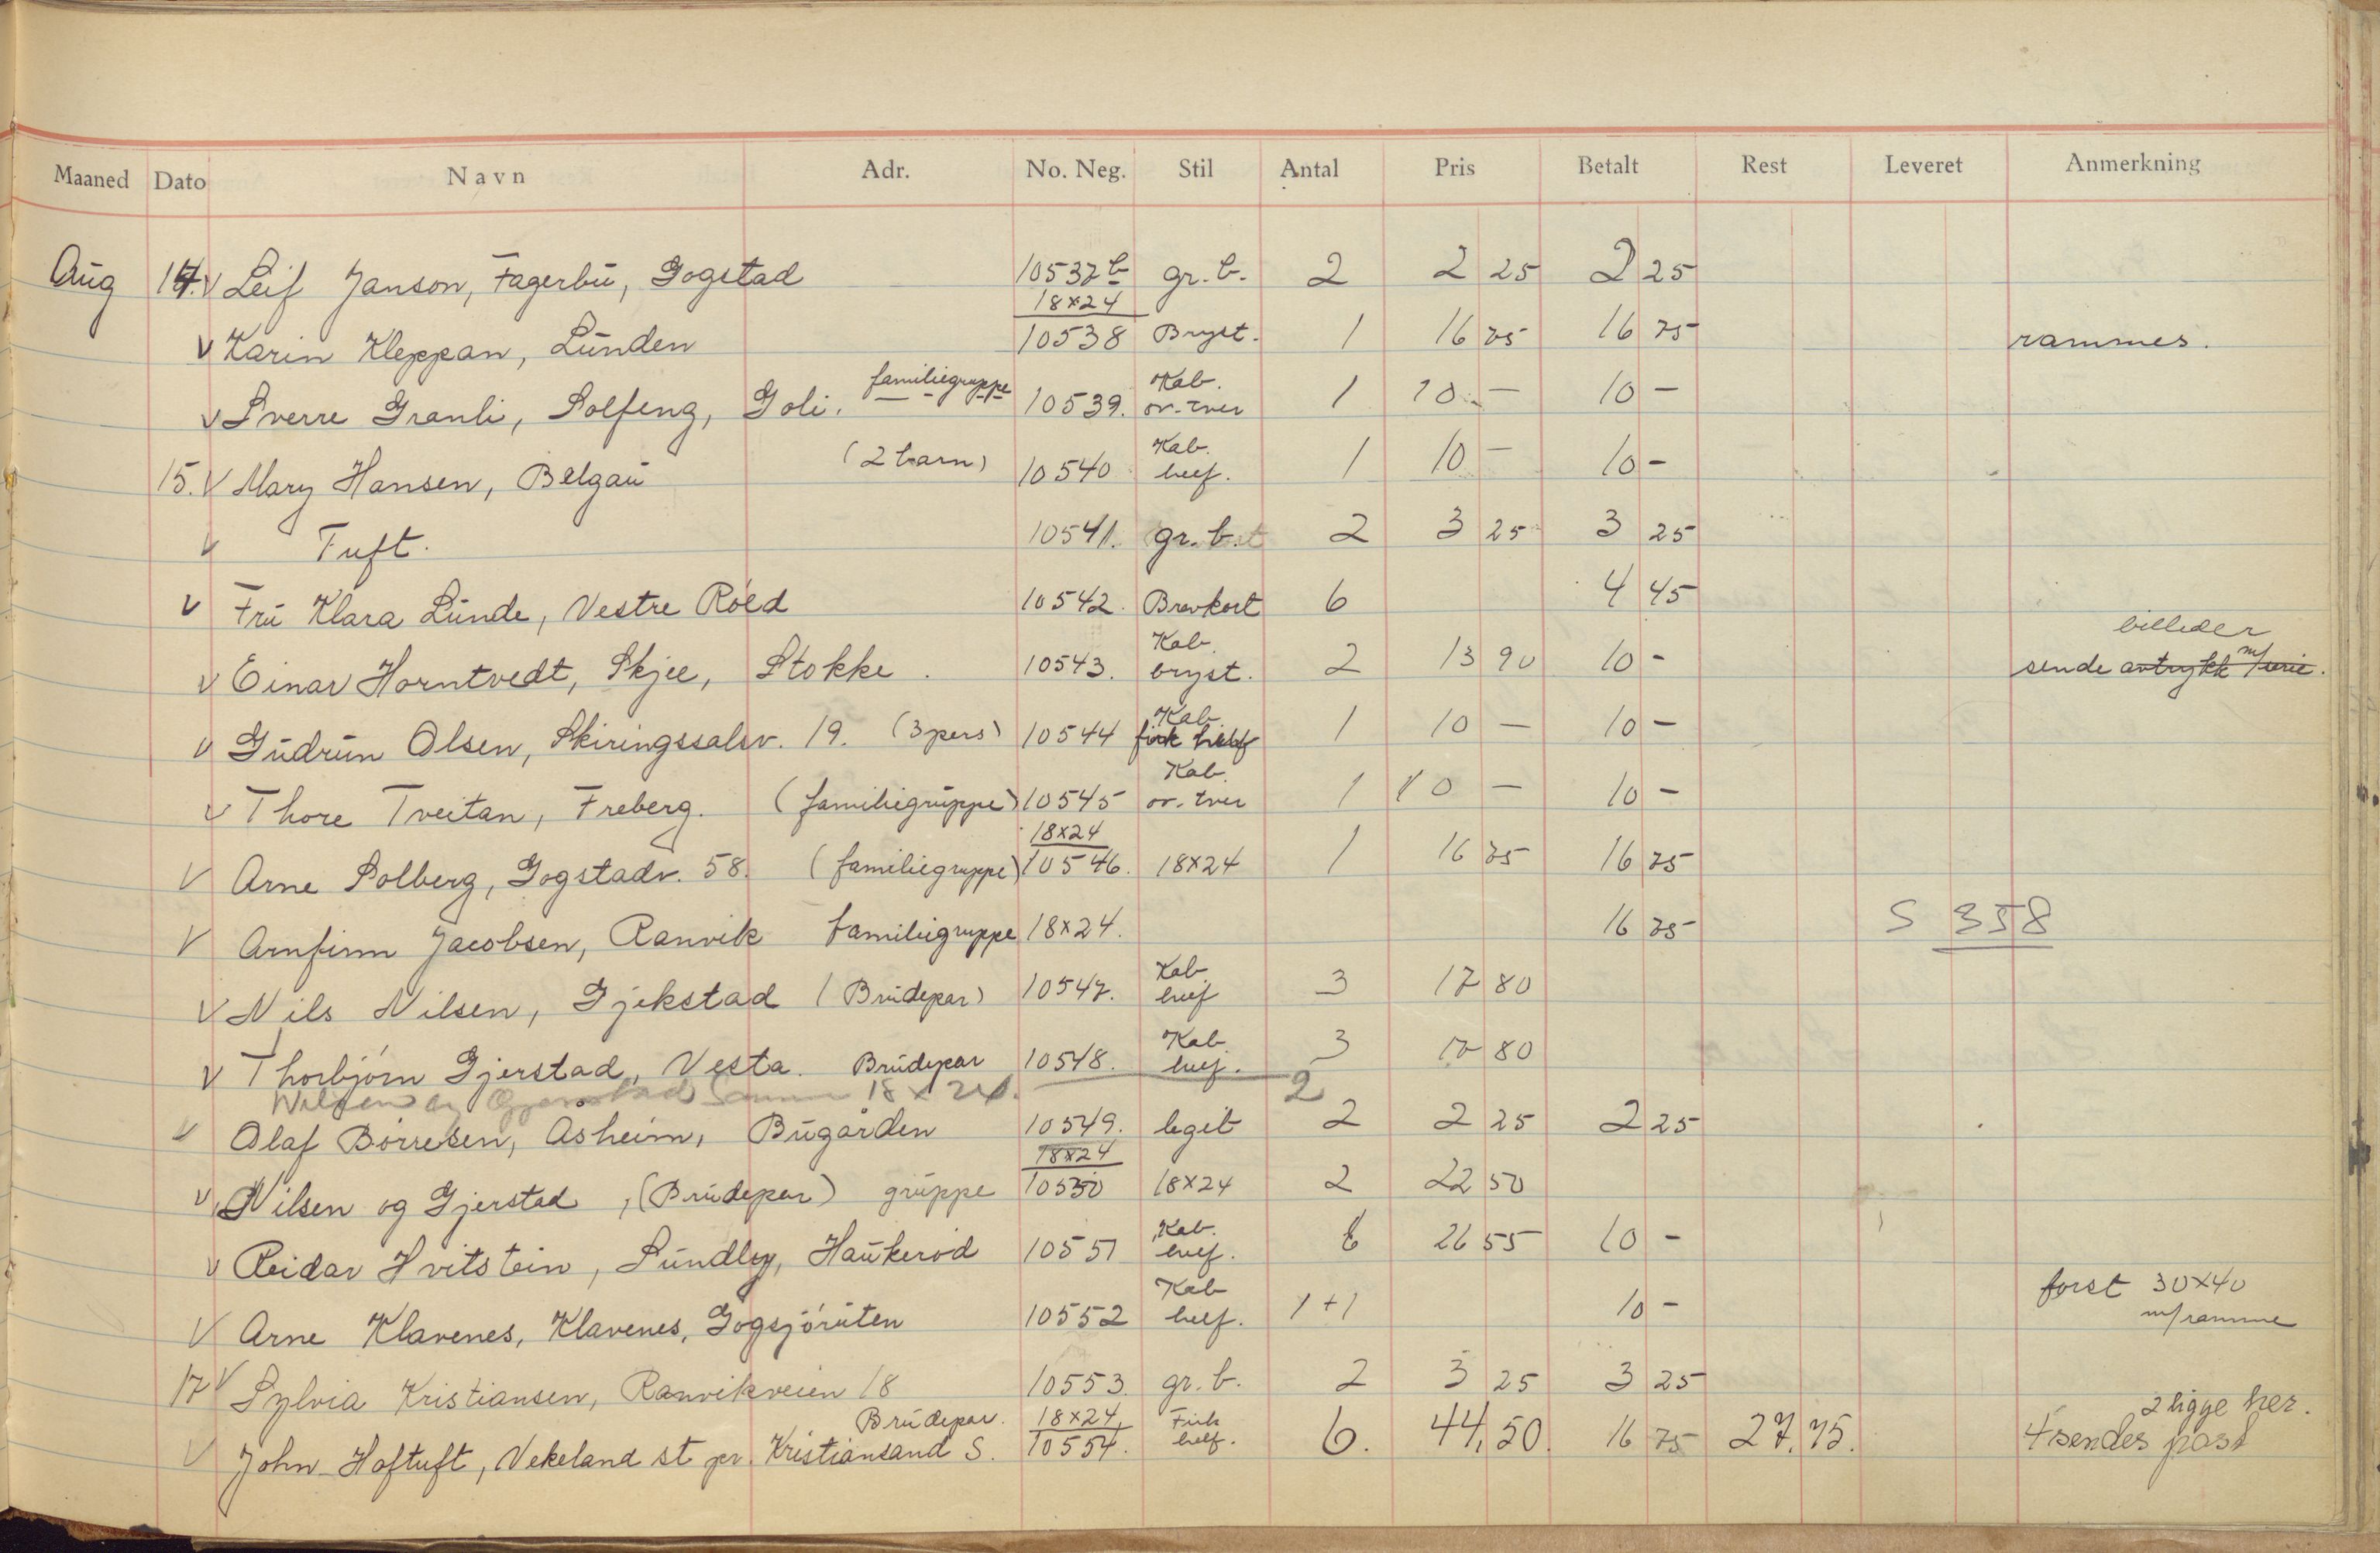 Maaned Dato Navn Adr. No. Neg. Stil Antal Pris Betalt Rest Leveret Anmerkning
Aug 14. V Leif Janson, Fagerbu, Gogstad 10537 b gr. b. 2 2 25 2 25
18x24
V Karin Kleppan, Lunden 10538 Bryst. 1 16 75 16 75 rammes.
familiegruppe Kab.
V Sverre Granli, Solfeng, Goli. 10539. ov. tver 1 10 - 10 -
(2 barn) Kab.
15. V Mary Hansen, Belgau 10540 helf. 1 10 - 10 -
V Tuft. 10541. gr. b. 2 3 25 3 25
V Fru Klara Lunde, Vestre Röed 10542. Brevkort 6 4 45
billeder
Kab.
V Einar Horntvedt, Skjee, Stokke. 10543. bryst. 2 13 90 10 - sende avtrykk m/serie.
Kab.
V Gudrun Olsen, Skiringssalsv. 19. (3 pers) 10544 helf 1 10 - 10 -
Kab.
V Thore Tveitan, Freberg. (familiegruppe) 10545 ov. tver 1 10 - 10 -
18x24
V Arne Solberg, Gogstadv. 58. (familiegruppe) 10546. 18x24 1 16 75 16 75
V Arnfinn Jacobsen, Ranvik familiegruppe 18x24. 16 75 S 358
Kab
V Nils Nilsen, Gjekstad (Brudepar) 10547. helf 3 17 80
Kab
V Thorbjörn Gjerstad, Vesta. Brudepar 10548. helf. 3 17 80
Nilsen og Gjerstad Samme 18 x 24. 2
V Olaf Börresen, Åsheim, Bugården 10549. legit 2 2 25 2 25
18x24
V Nilsen og Gjerstad, (Brudepar) gruppe 10550 18x24 2 22 50
Kab.
V Reidar Hvitstein, Sundby, Haukeröd 10551 helf. 6 26 55 10 -
Kab forst 30x40
V Arne Klavenes, Klavenes, Gogsjöruten 10552 helf. 1+1 10 - m/ramme
17 V Sylvia Kristiansen, Ranvikveien 18 10553. gr. b. 2 3 25 3 25
Brudepar. 18x24. 2 ligge her.
V John Hoftuft, Vekeland st pr. Kristiansand S. 10554. helf. 6. 44,50. 16 75 27,75. 4 sendes post